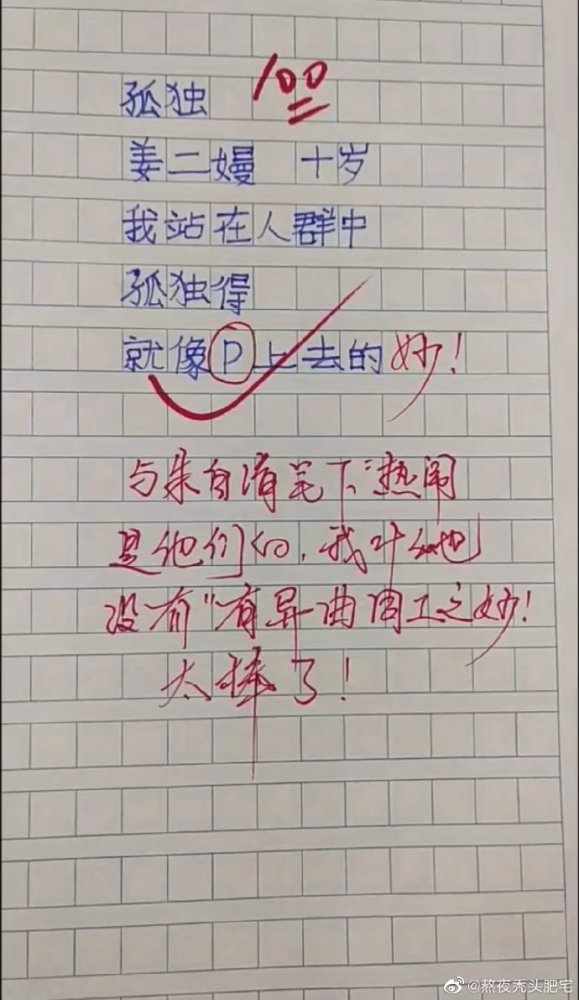 孤独 100
姜二嫚 十岁
我站在人群中
孤独得
就像P上去的 妙!
与朱自清笔下"热闹
是他们的,我什么也
没有"有异曲同工之妙!
太棒了!
@熬夜秃头肥宅